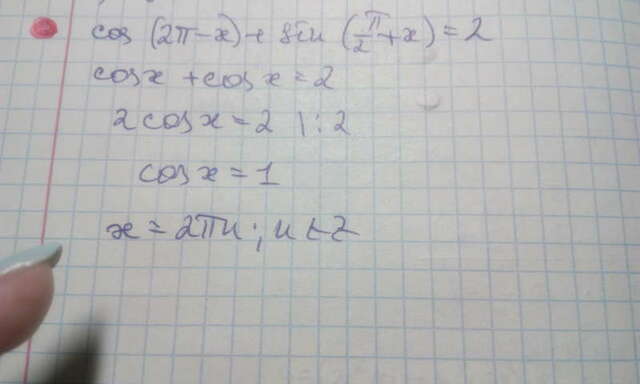 cos (2π-x) + sin (π/2+x) = 2
cos x + cos x = 2
2 cos x = 2 | : 2
cos x = 1
x = 2πn ; n ∈ Z